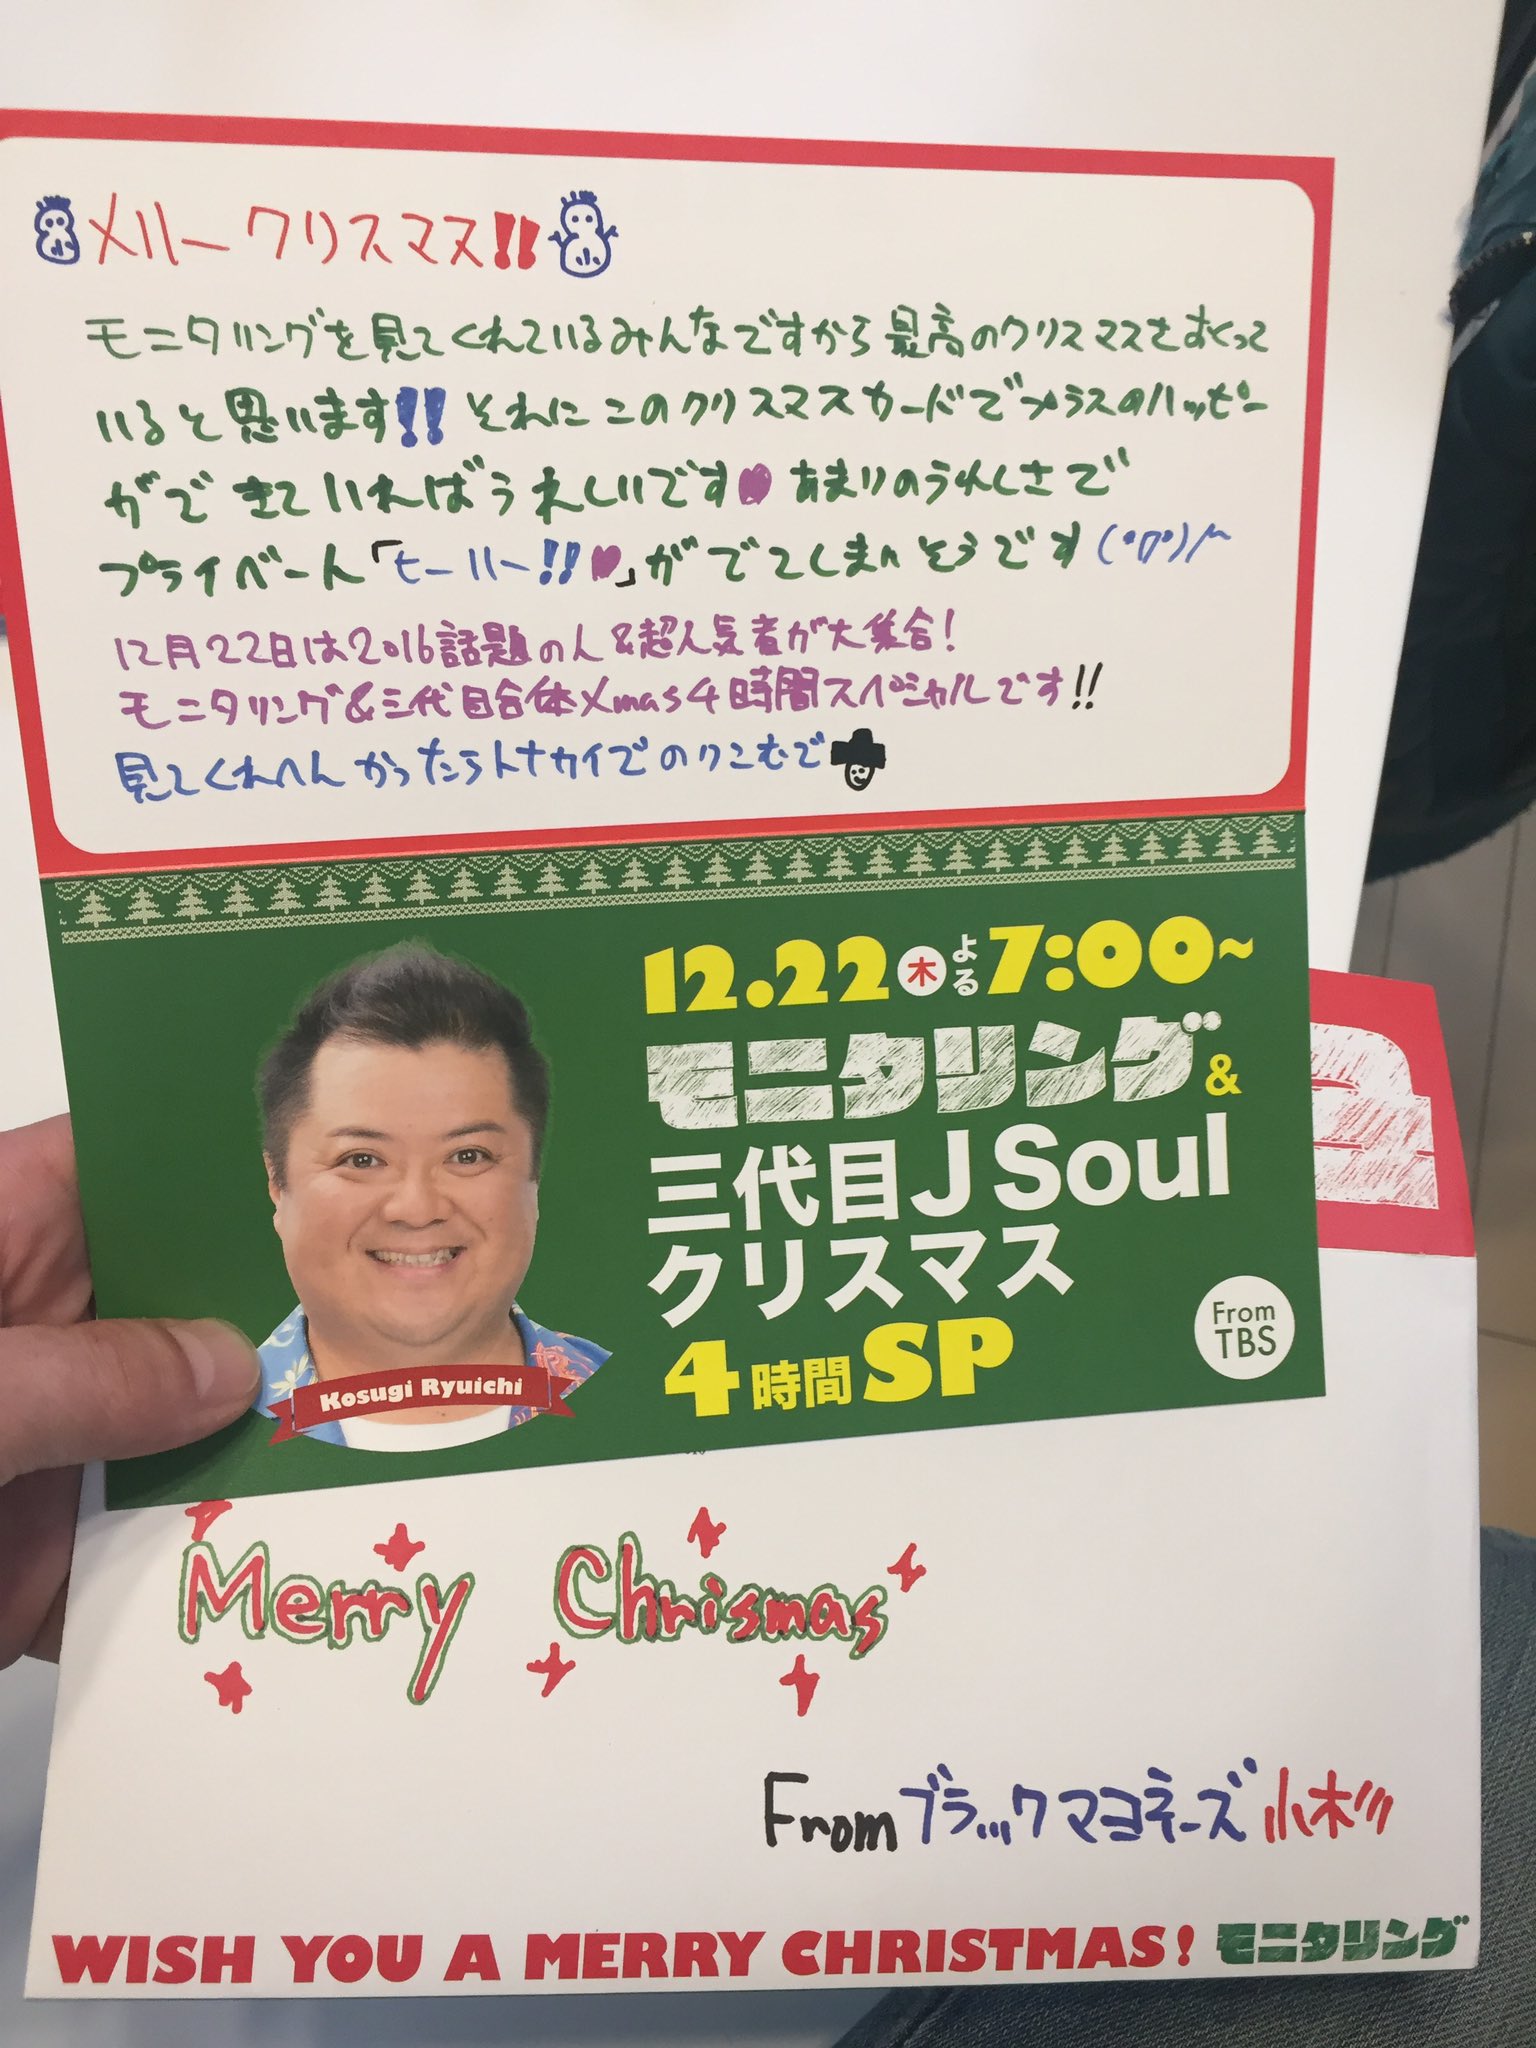 メリークリスマス!!
モニタリングを見てくれているみんなですから最高のクリスマスをおくって
いると思います!! それにこのクリスマスカードでプラスのハッピー
ができていればうれしいです あまりのうれしさで
プライベート「ヒーハー!!」がでてしまいそうです(°∇°)/~
12月22日は2016話題の人&超人気者が大集合!
モニタリング&三代目合体Xmas4時間スペシャルです!!
見てくれへんかったらトナカイでのりこむで
12.22 木 よる 7:00~
モニタリング&
三代目J Soul
クリスマス
4時間SP
From
TBS
Kosugi Ryuichi
Merry Chrismas
From ブラックマヨネーズ 小杉
WISH YOU A MERRY CHRISTMAS! モニタリング